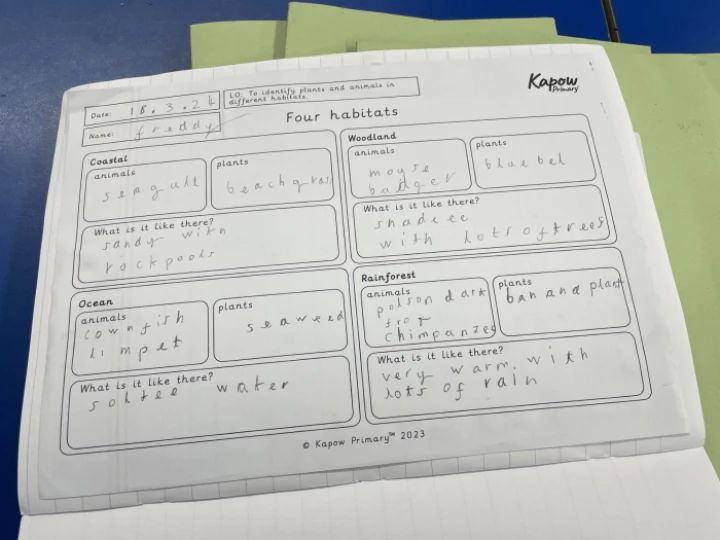 Date: 18.3.24
LO: To identify plants and animals in
different habitats.
Kapow
Primary
Name: freddy
Four habitats
Coastal
animals
seagull
plants
beachgrass
What is it like there?
sandy with
rockpools
Woodland
animals
mouse
badger
plants
bluebel
What is it like there?
shadeee
with lots of trees
Ocean
animals
cownfish
limpet
plants
seaweed
What is it like there?
soltee water
Rainforest
animals
poison dart
frog
chimpanzes
plants
banana plant
What is it like there?
very warm. with
lots of rain
© Kapow Primary™ 2023